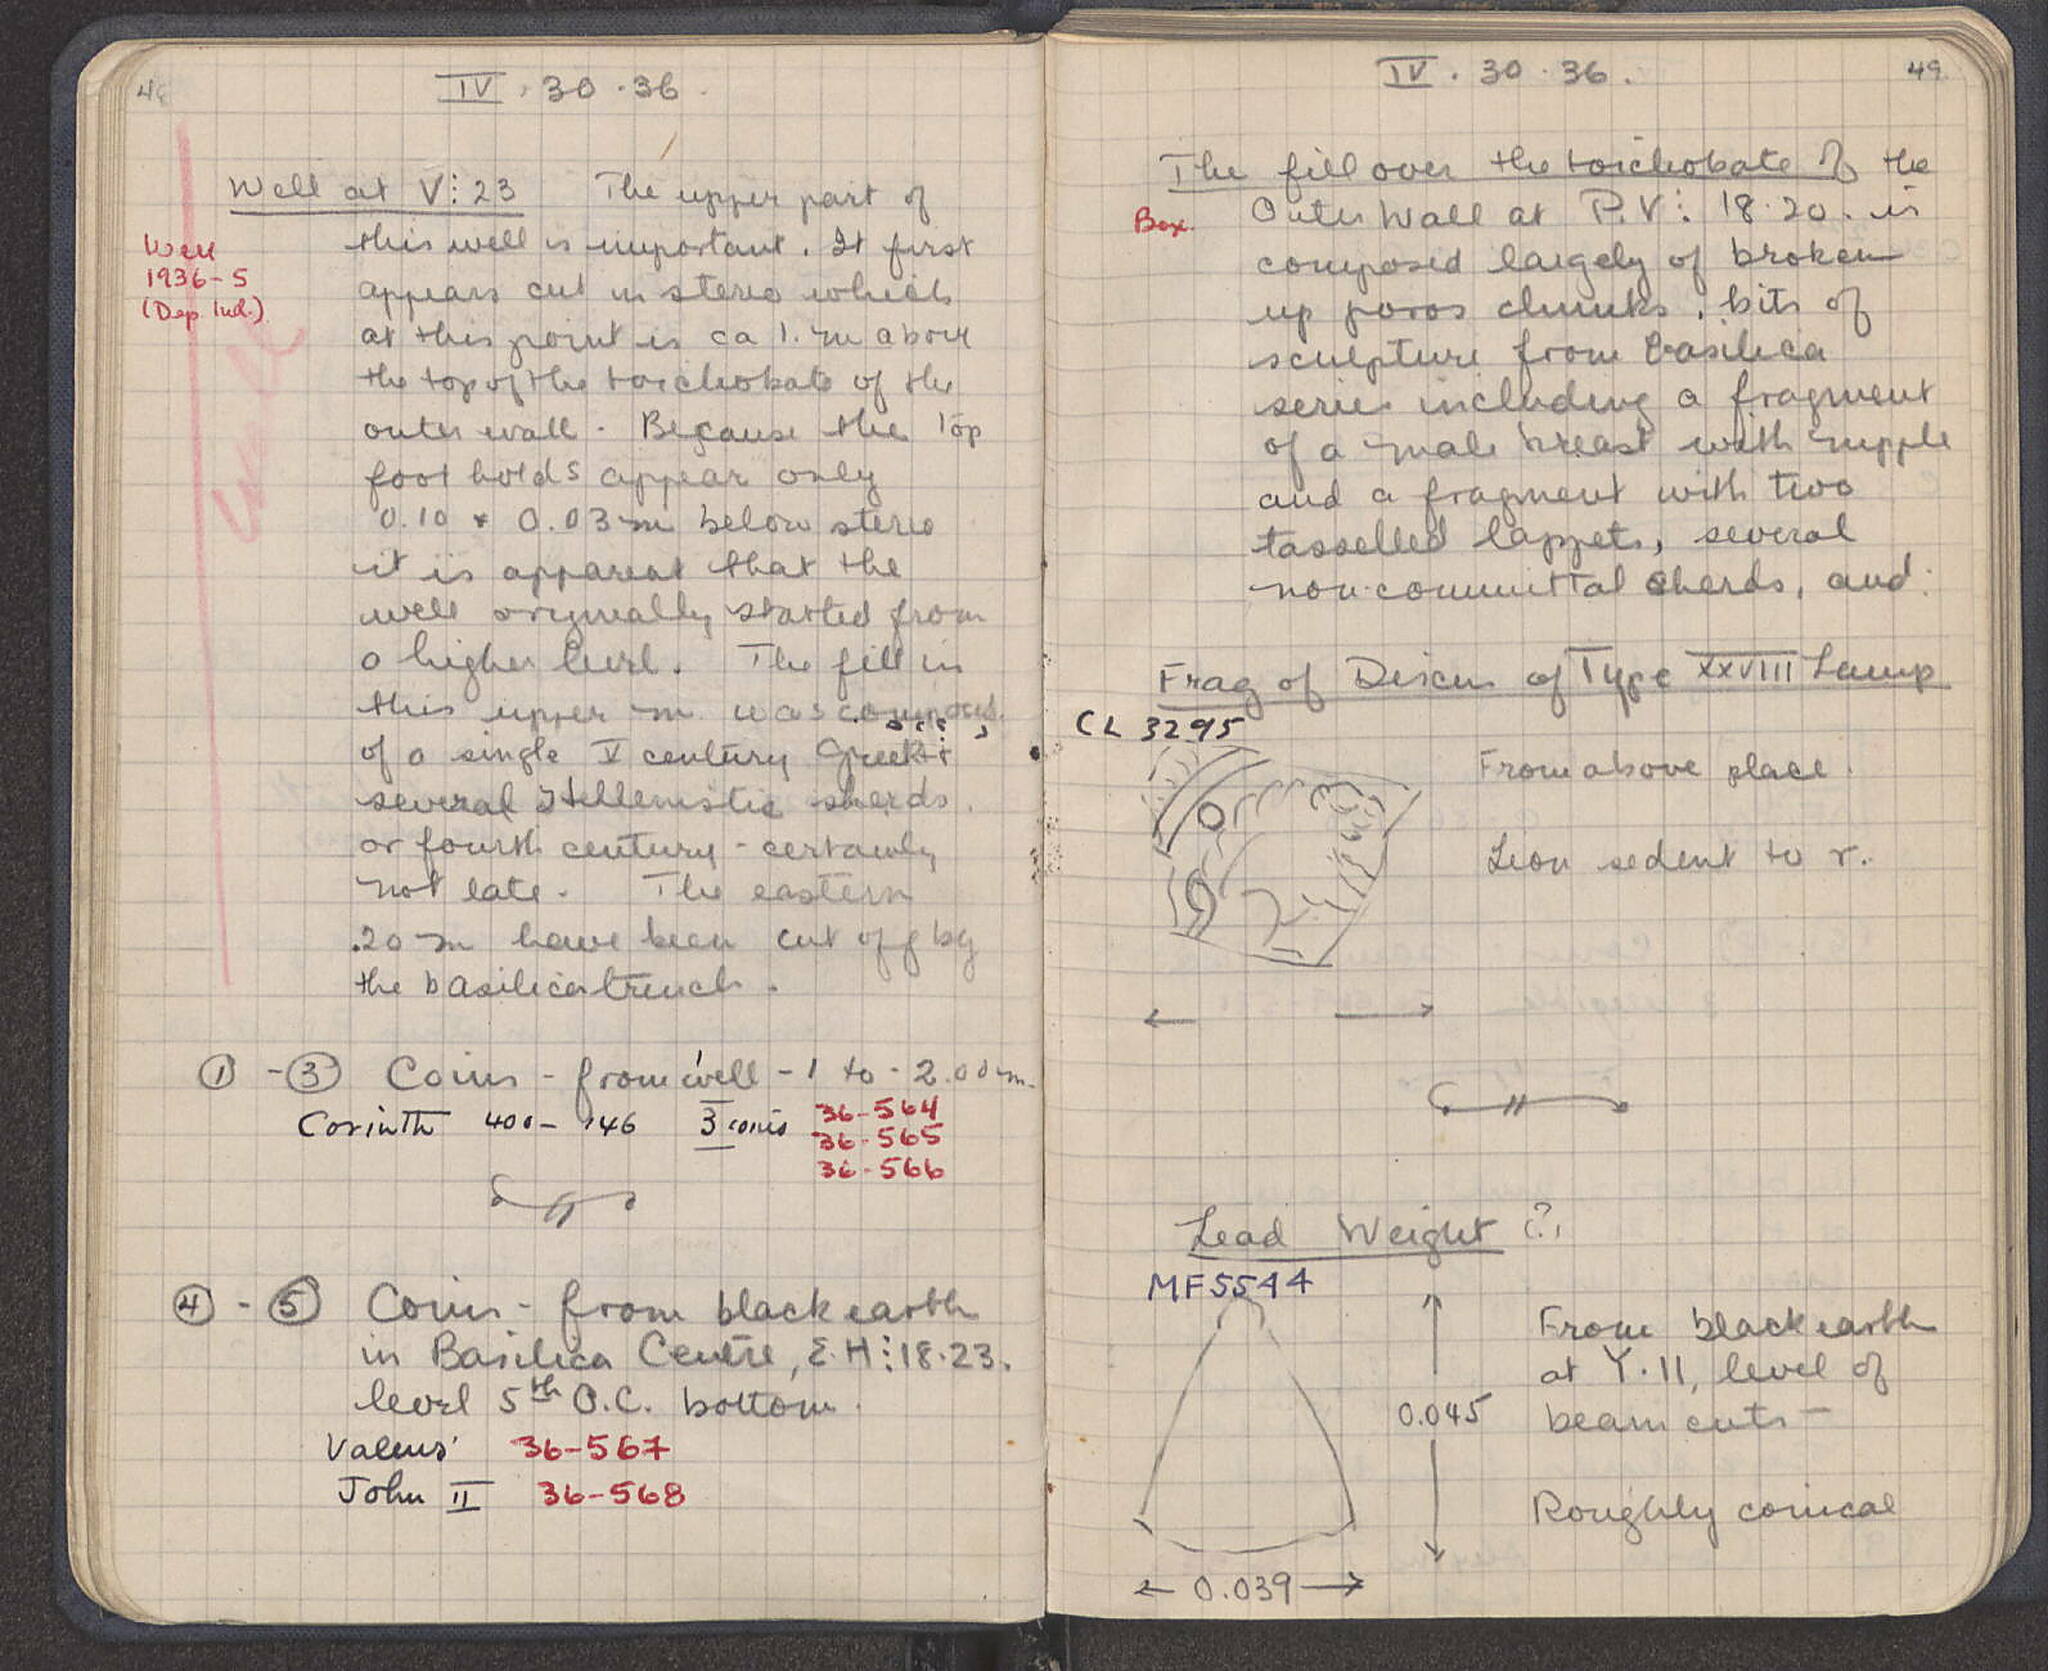 IV · 30 · 36 ·
Well at V⋮23 The upper part of
this well is important. It first
Well
1936-5
(Dep. Ind.)
appears cut in stereo which
at this point is ca 1. m above
the top of the toichobate of the
outer wall - Because the top
foot holds appear only
0.10 + 0.03 m below stereo
it is apparent that the
well originally started from
a higher level. The fill in
this upper m. was composed
of a single V century Greek +
several Hellenistic sherds.
or fourth century - certainly
not late - The eastern
.20 m have been cut off by
the basilica trench.
① - ③ Coins - from well - 1 to - 2.00 m.
Corinth 400 - 146 3 coins 36-564
36-565
36-566
④ - ⑤ Coins - from black earth
in Basilica Centre, E.H⋮18·23.
level 5th O.C. bottom.
Valens 36-567
John II 36-568
IV · 30 · 36 .
49
The fill over the toichobate of the
Box. Outer Wall at P.V⋮ 18·20. is
composed largely of broken
up poros chunks, bits of
sculpture from basilica
series including a fragment
of a male breast with nipple
and a fragment with two
tasselled lappets, several
non-committal sherds, and:
Frag of Discus of Type XXVIII Lamp
CL 3295
From above place.
Lion sedent to r.
Lead Weight (?)
MF5544
From black earth
at Y·11, level of
0.045 beam cuts -
Roughly conical
0.039